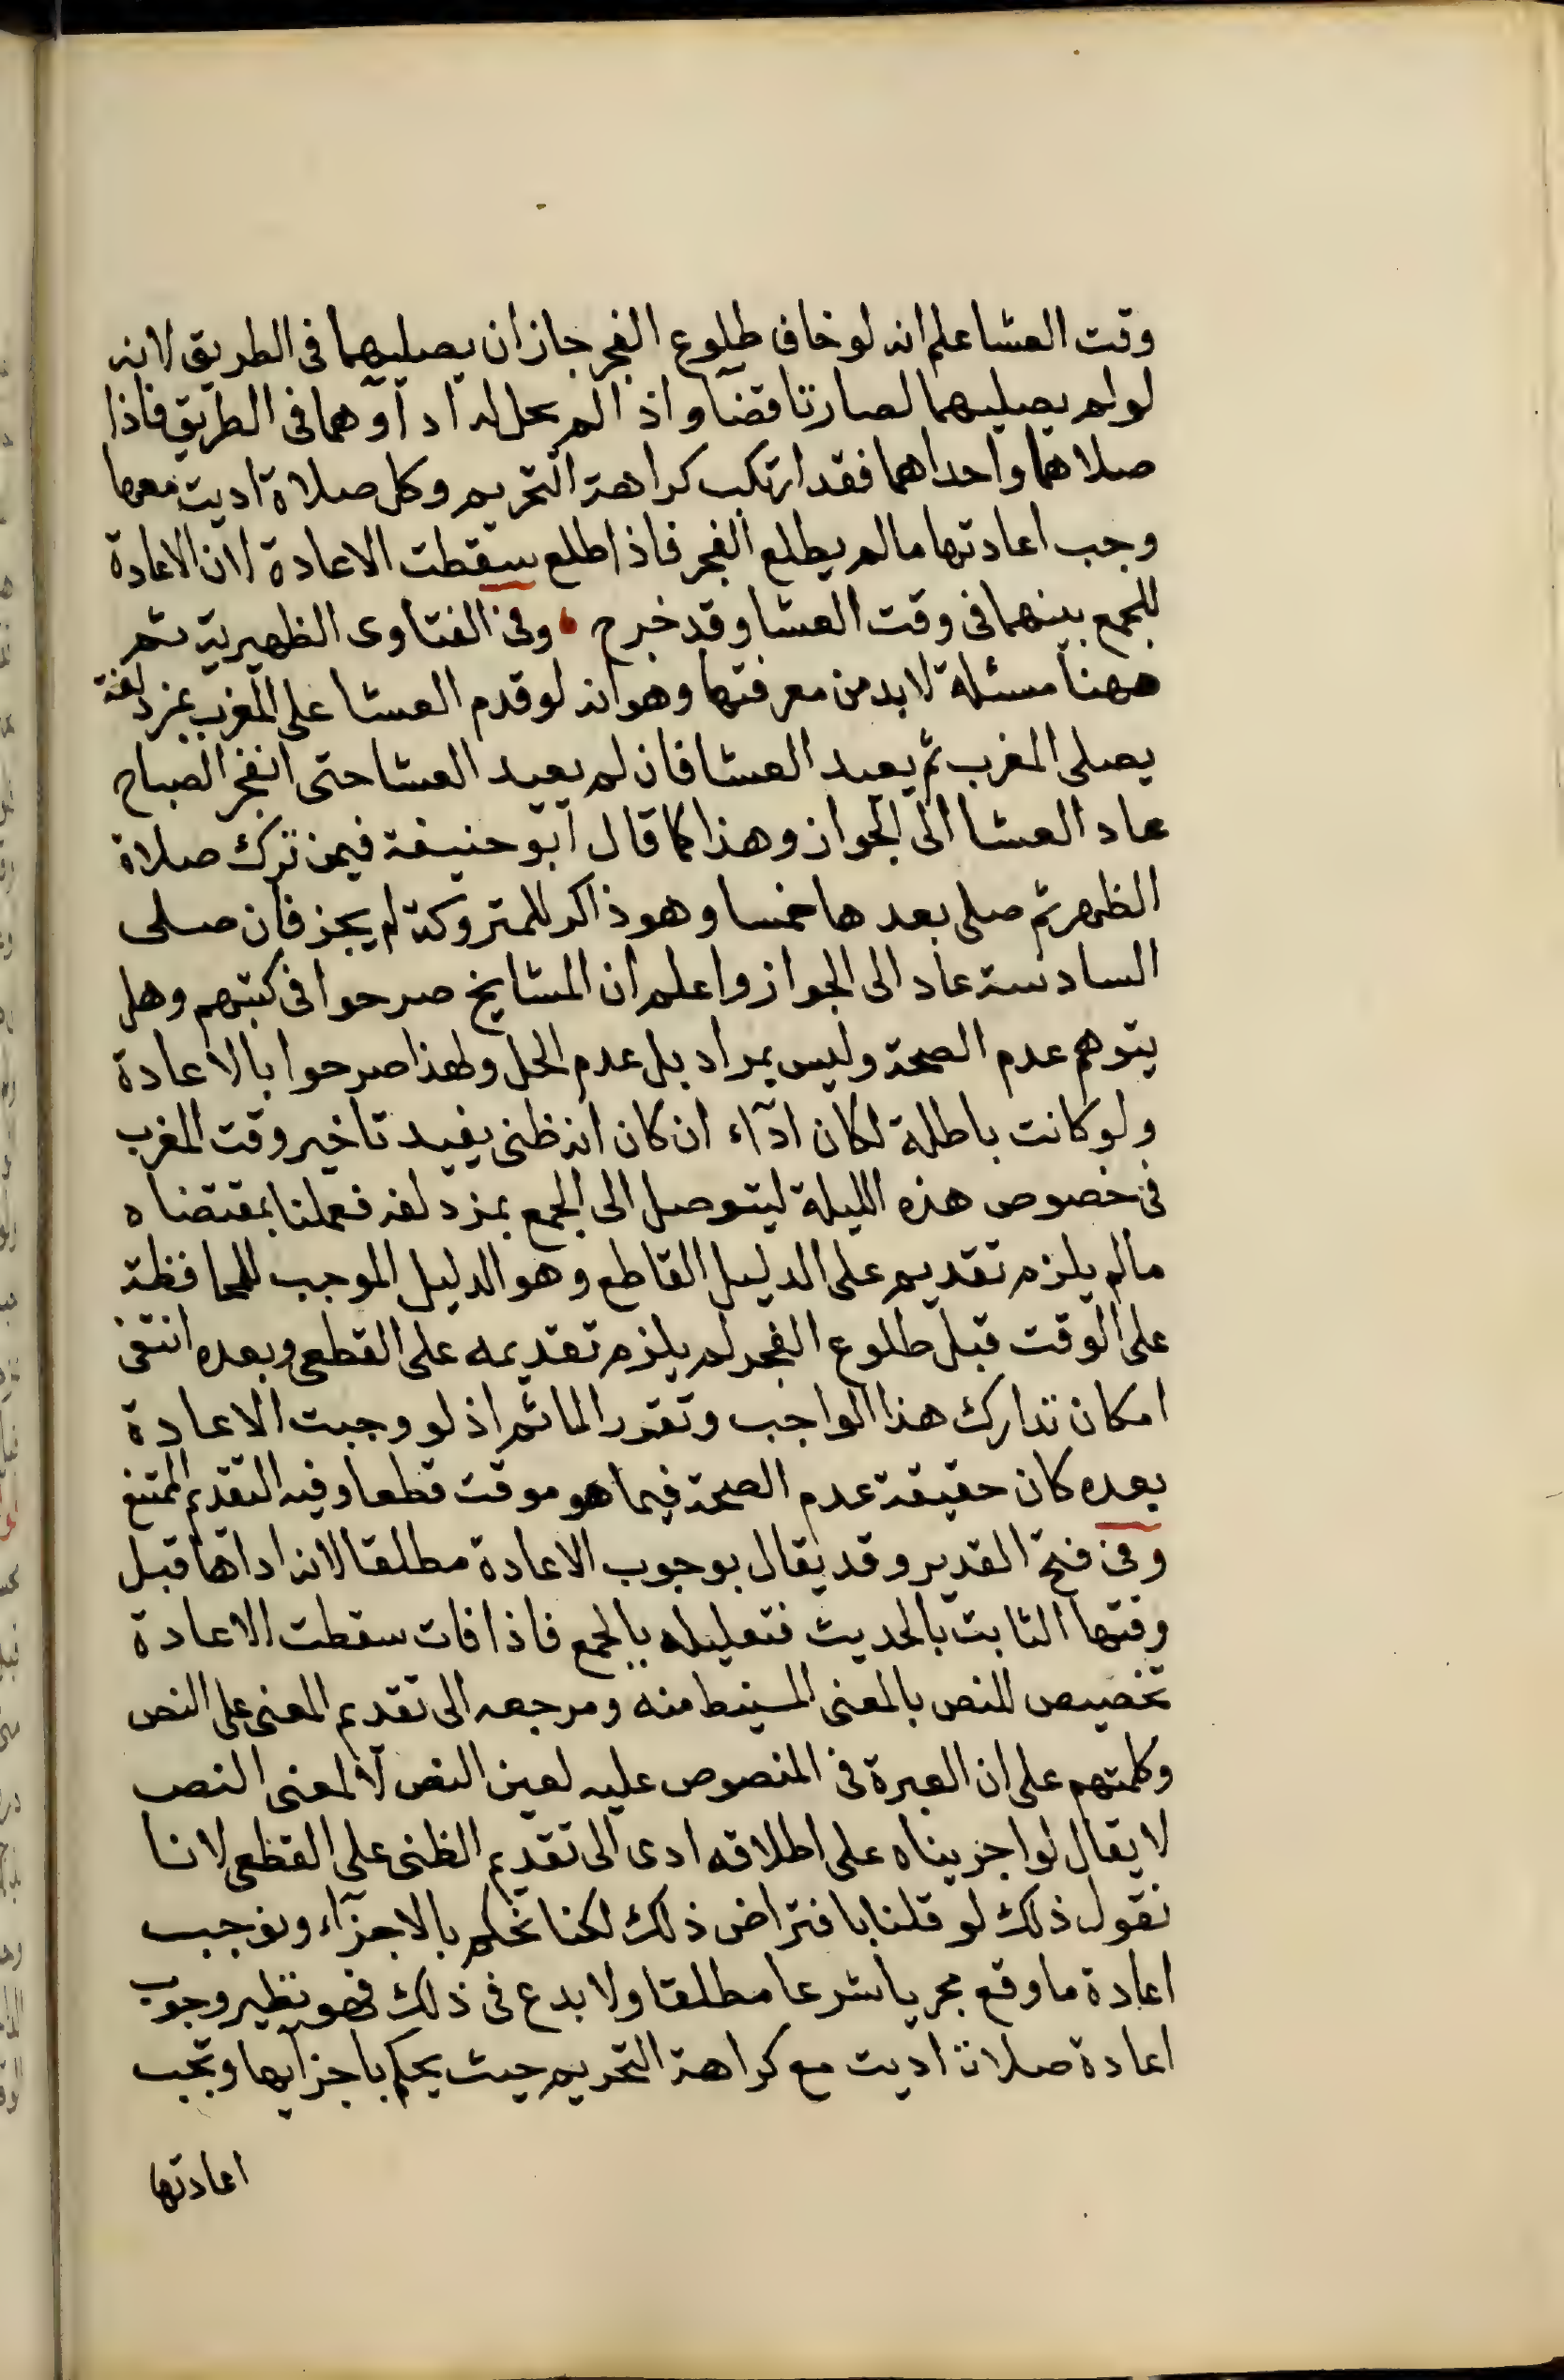 وقت العشا علم انه لو خاف طلوع الفجر جاز ان يصليهما فى الطريق لانه
لو لم يصليهما لصارتا قضآ واذا لم يحل له ادآوهما فى الطريق فاذا
صلاهما واحداهما فقد ارتكب كراهة التحريم وكل صلاة اديت معها
وجب اعادتها مالم يطلع الفجر فاذا طلع سقطت الاعادة لان الاعادة
للجمع بينهما فى وقت العشا وقد خرج وفى الفتاوى الظهيرية ثم
ههنا مسئلة لا بد من معرفتها وهو انه لو قدم العشا على المغرب بمزدلفة
يصلى المغرب ثم يعيد العشا فان لم يعيد العشا حتى انفجر الصباح
عاد العشا الى الجواز وهذا كما قال ابو حنيفة فيمن ترك صلاة
الظهر ثم صلى بعدها خمسا وهو ذاكر للمتروكة لم يجز فان صلى
السادسة عاد الى الجواز واعلم ان المشايخ صرحوا فى كتبهم وهل
يتوهم عدم الصحة وليس بمراد بل عدم الحل ولهذا صرحوا بالاعادة
ولو كانت باطلة لكان ادآء ان كان انه ظنى يفيد تاخير وقت المغرب
فى خصوص هذه الليلة ليتوصل الى الجمع بمزدلفه فعملنا بمقتضاه
مالم يلزم تقديم على الدليل القاطع وهو الدليل الموجب للمحافظة
على الوقت قبل طلوع الفجر لم يلزم تقديمه على القطعى وبعده انتفى
امكان تدارك هذا الواجب وتقرر الماثم اذ لو وجبت الاعادة
بعده كان حقيقة عدم الصحة فيما هو موقت قطعا وفيه التقديم الممتنع
وفى فتح القدير وقد يقال بوجوب الاعادة مطلقا لانه اداها قبل
وقتها الثابت بالحديث فتعليله بالجمع فاذا فات سقطت الاعادة
تخصيص للنص بالمعنى المستنبط منه ومرجعه الى تقديم المعنى على النص
وكلمتهم على ان العبرة فى المنصوص عليه لعين النص لا لمعنى النص
لا يقال لو اجريناه على اطلاقه ادى الى تقديم الظنى على القطعى لانا
نقول ذلك لو قلنا بافتراض ذلك لكنا نحكم بالاجزآء ونوجب
اعادة ما وقع مجريا شرعا مطلقا ولا بدع فى ذلك فهو نظير وجوب
اعادة صلاة اديت مع كراهة التحريم حيث يحكم باجزآيها وتجب
اعادتها